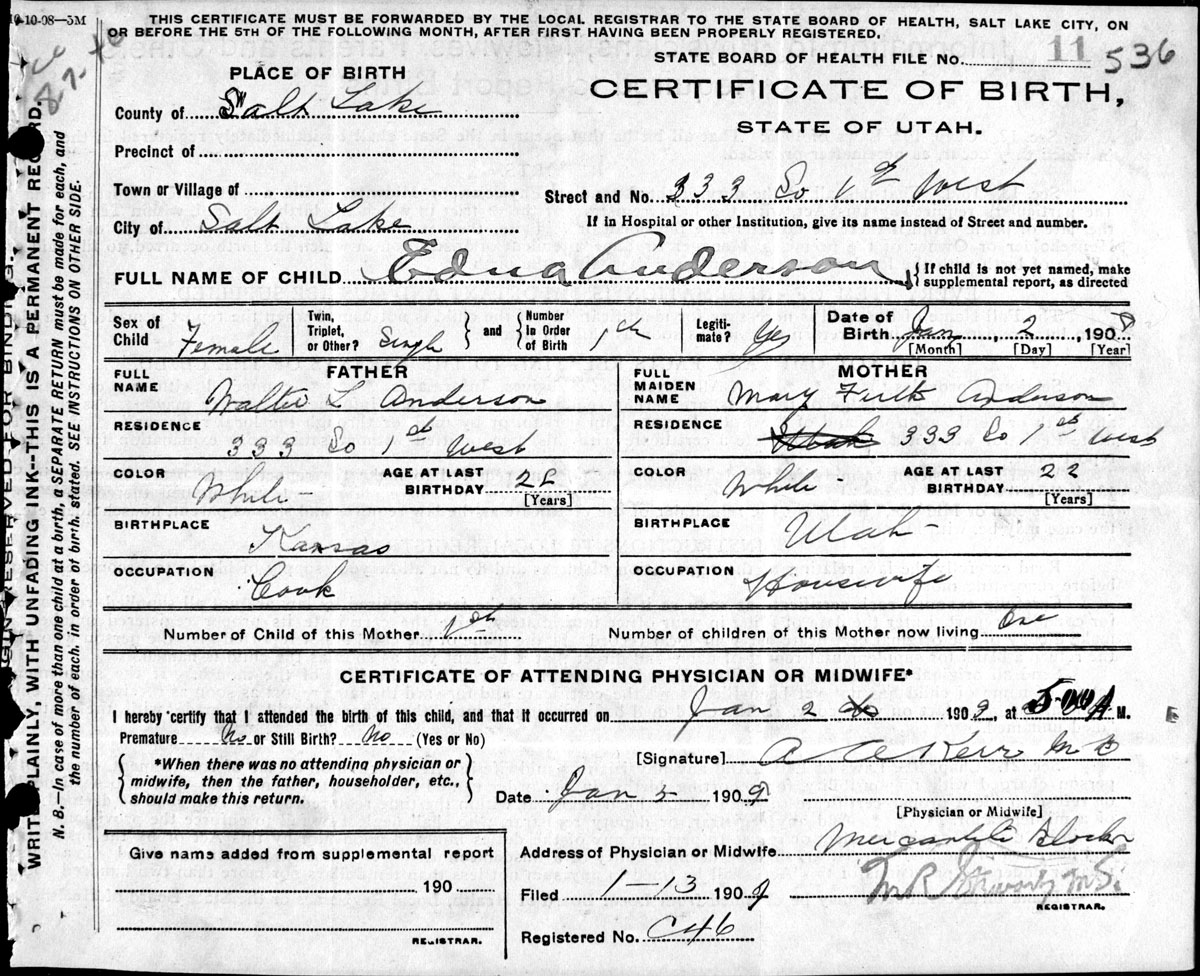 10-10-08—5M
THIS CERTIFICATE MUST BE FORWARDED BY THE LOCAL REGISTRAR TO THE STATE BOARD OF HEALTH, SALT LAKE CITY, ON
OR BEFORE THE 5TH OF THE FOLLOWING MONTH, AFTER FIRST HAVING BEEN PROPERLY REGISTERED.
STATE BOARD OF HEALTH FILE NO. 11 536
PLACE OF BIRTH
CERTIFICATE OF BIRTH,
STATE OF UTAH.
County of Salt Lake
Precinct of
Town or Village of
Street and No. 333 So 1st West
City of Salt Lake
If in Hospital or other Institution, give its name instead of Street and number.
FULL NAME OF CHILD Edna Anderson
If child is not yet named, make
supplemental report, as directed
Sex of Child Female
Twin, Triplet, or Other? Single
and Number in Order of Birth 1st
Legitimate? Yes
Date of Birth Jan 2, 190
[Month] [Day] [Year]
FATHER
FULL NAME Walter L Anderson
RESIDENCE 333 So 1st West
COLOR White AGE AT LAST BIRTHDAY 22 [Years]
BIRTHPLACE Kansas
OCCUPATION Cook
MOTHER
FULL MAIDEN NAME Mary Anderson
RESIDENCE 333 So 1st West
COLOR White AGE AT LAST BIRTHDAY 22 [Years]
BIRTHPLACE Utah
OCCUPATION Housewife
Number of Child of this Mother 1st Number of children of this Mother now living One
CERTIFICATE OF ATTENDING PHYSICIAN OR MIDWIFE*
I hereby certify that I attended the birth of this child, and that it occurred on Jan 2 1909, at 5:00 A M.
Premature No or Still Birth? No (Yes or No)
*When there was no attending physician or
midwife, then the father, householder, etc.,
should make this return.
[Signature] A A Kerr M D
Date Jan 1909
[Physician or Midwife]
Address of Physician or Midwife Mercantile Block
Filed 1-13 1909
M R M.D.
REGISTRAR.
Registered No. C46
Give name added from supplemental report
190
REGISTRAR.
MARGIN RESERVED FOR BINDING.
WRITE PLAINLY, WITH UNFADING INK--THIS IS A PERMANENT RECORD.
N. B.—In case of more than one child at a birth, a SEPARATE RETURN must be made for each, and
the number of each, in order of birth, stated. SEE INSTRUCTIONS ON OTHER SIDE.